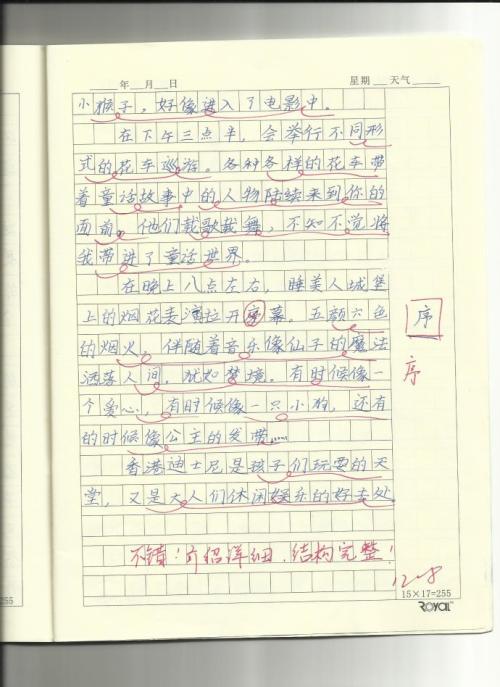 年 月 日 星期 天气
小猴子，好像进入了电影中。
在下午三点半，会举行不同形
式的花车巡游。各种各样的花车带
着童话故事中的人物陆续来到你的
面前。他们载歌载舞，不知不觉将
我带进了童话世界。
在晚上八点左右，睡美人城堡
上的烟花表演拉开序幕。五颜六色
的烟火，伴随着音乐像仙子的魔法
洒落人间，犹如梦境。有时候像一
个爱心，有时候像一只小狗，还有
的时候像公主的发带……
香港迪士尼是孩子们玩耍的天
堂，又是大人们休闲娱乐的好去处。
序
序
不错！介绍详细，结构完整！
12-8
15×17=255
ROYAL
255